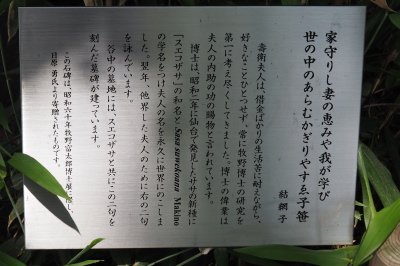 家守りし妻の恵みや我が学び
世の中のあらむかぎりやすゑ子笹
結網子
壽衛夫人は、借金ばかりの生活苦に耐えながら、
好きなことひとつせず、常に牧野博士の研究を
第一に考え尽くしてきました。博士の偉業は
夫人の内助の功の賜物と言われています。
博士は、昭和二年に仙台で発見したササの新種に
「スエコザサ」の和名と Sasa suwekoana Makino
の学名をつけ夫人の名を永久に世界にのこしま
した。翌年、他界した夫人のために右の二句
を詠んでいます。
谷中の墓地には、スエコザサと共にこの二句を
刻んだ墓碑が建っています。
この石碑は、昭和六十年牧野富太郎博士展に際し、
田原 勇氏より寄贈されたものです。